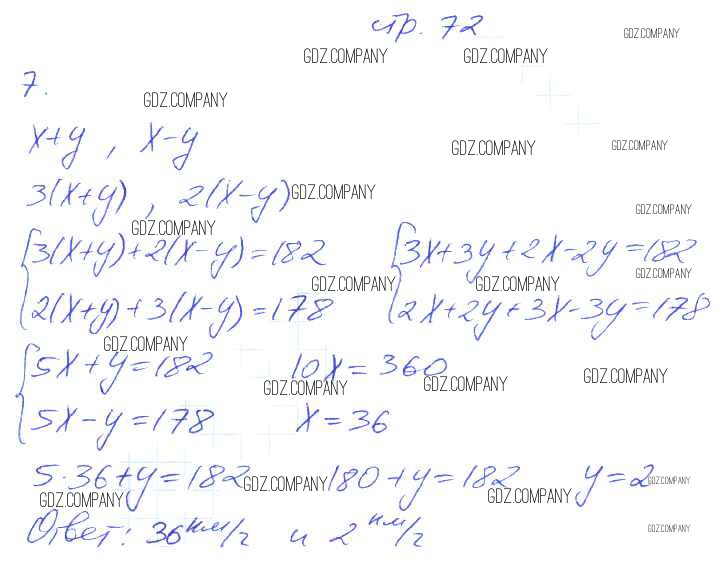 стр. 72
GDZ.COMPANY
GDZ.COMPANY GDZ.COMPANY
7.
GDZ.COMPANY
x+y , x-y
GDZ.COMPANY GDZ.COMPANY
3(x+y), 2(x-y)
GDZ.COMPANY
GDZ.COMPANY
GDZ.COMPANY
{3(x+y)+2(x-y)=182 {3x+3y+2x-2y=182
GDZ.COMPANY GDZ.COMPANY GDZ.COMPANY
2(x+y)+3(x-y)=178 2x+2y+3x-3y=178
GDZ.COMPANY
{5x+y=182 10x=360
GDZ.COMPANY GDZ.COMPANY GDZ.COMPANY
5x-y=178 x=36
5·36+y=182 180+y=182 y=2
GDZ.COMPANY GDZ.COMPANY
GDZ.COMPANY GDZ.COMPANY
Ответ: 36 км/г и 2 км/г
GDZ.COMPANY